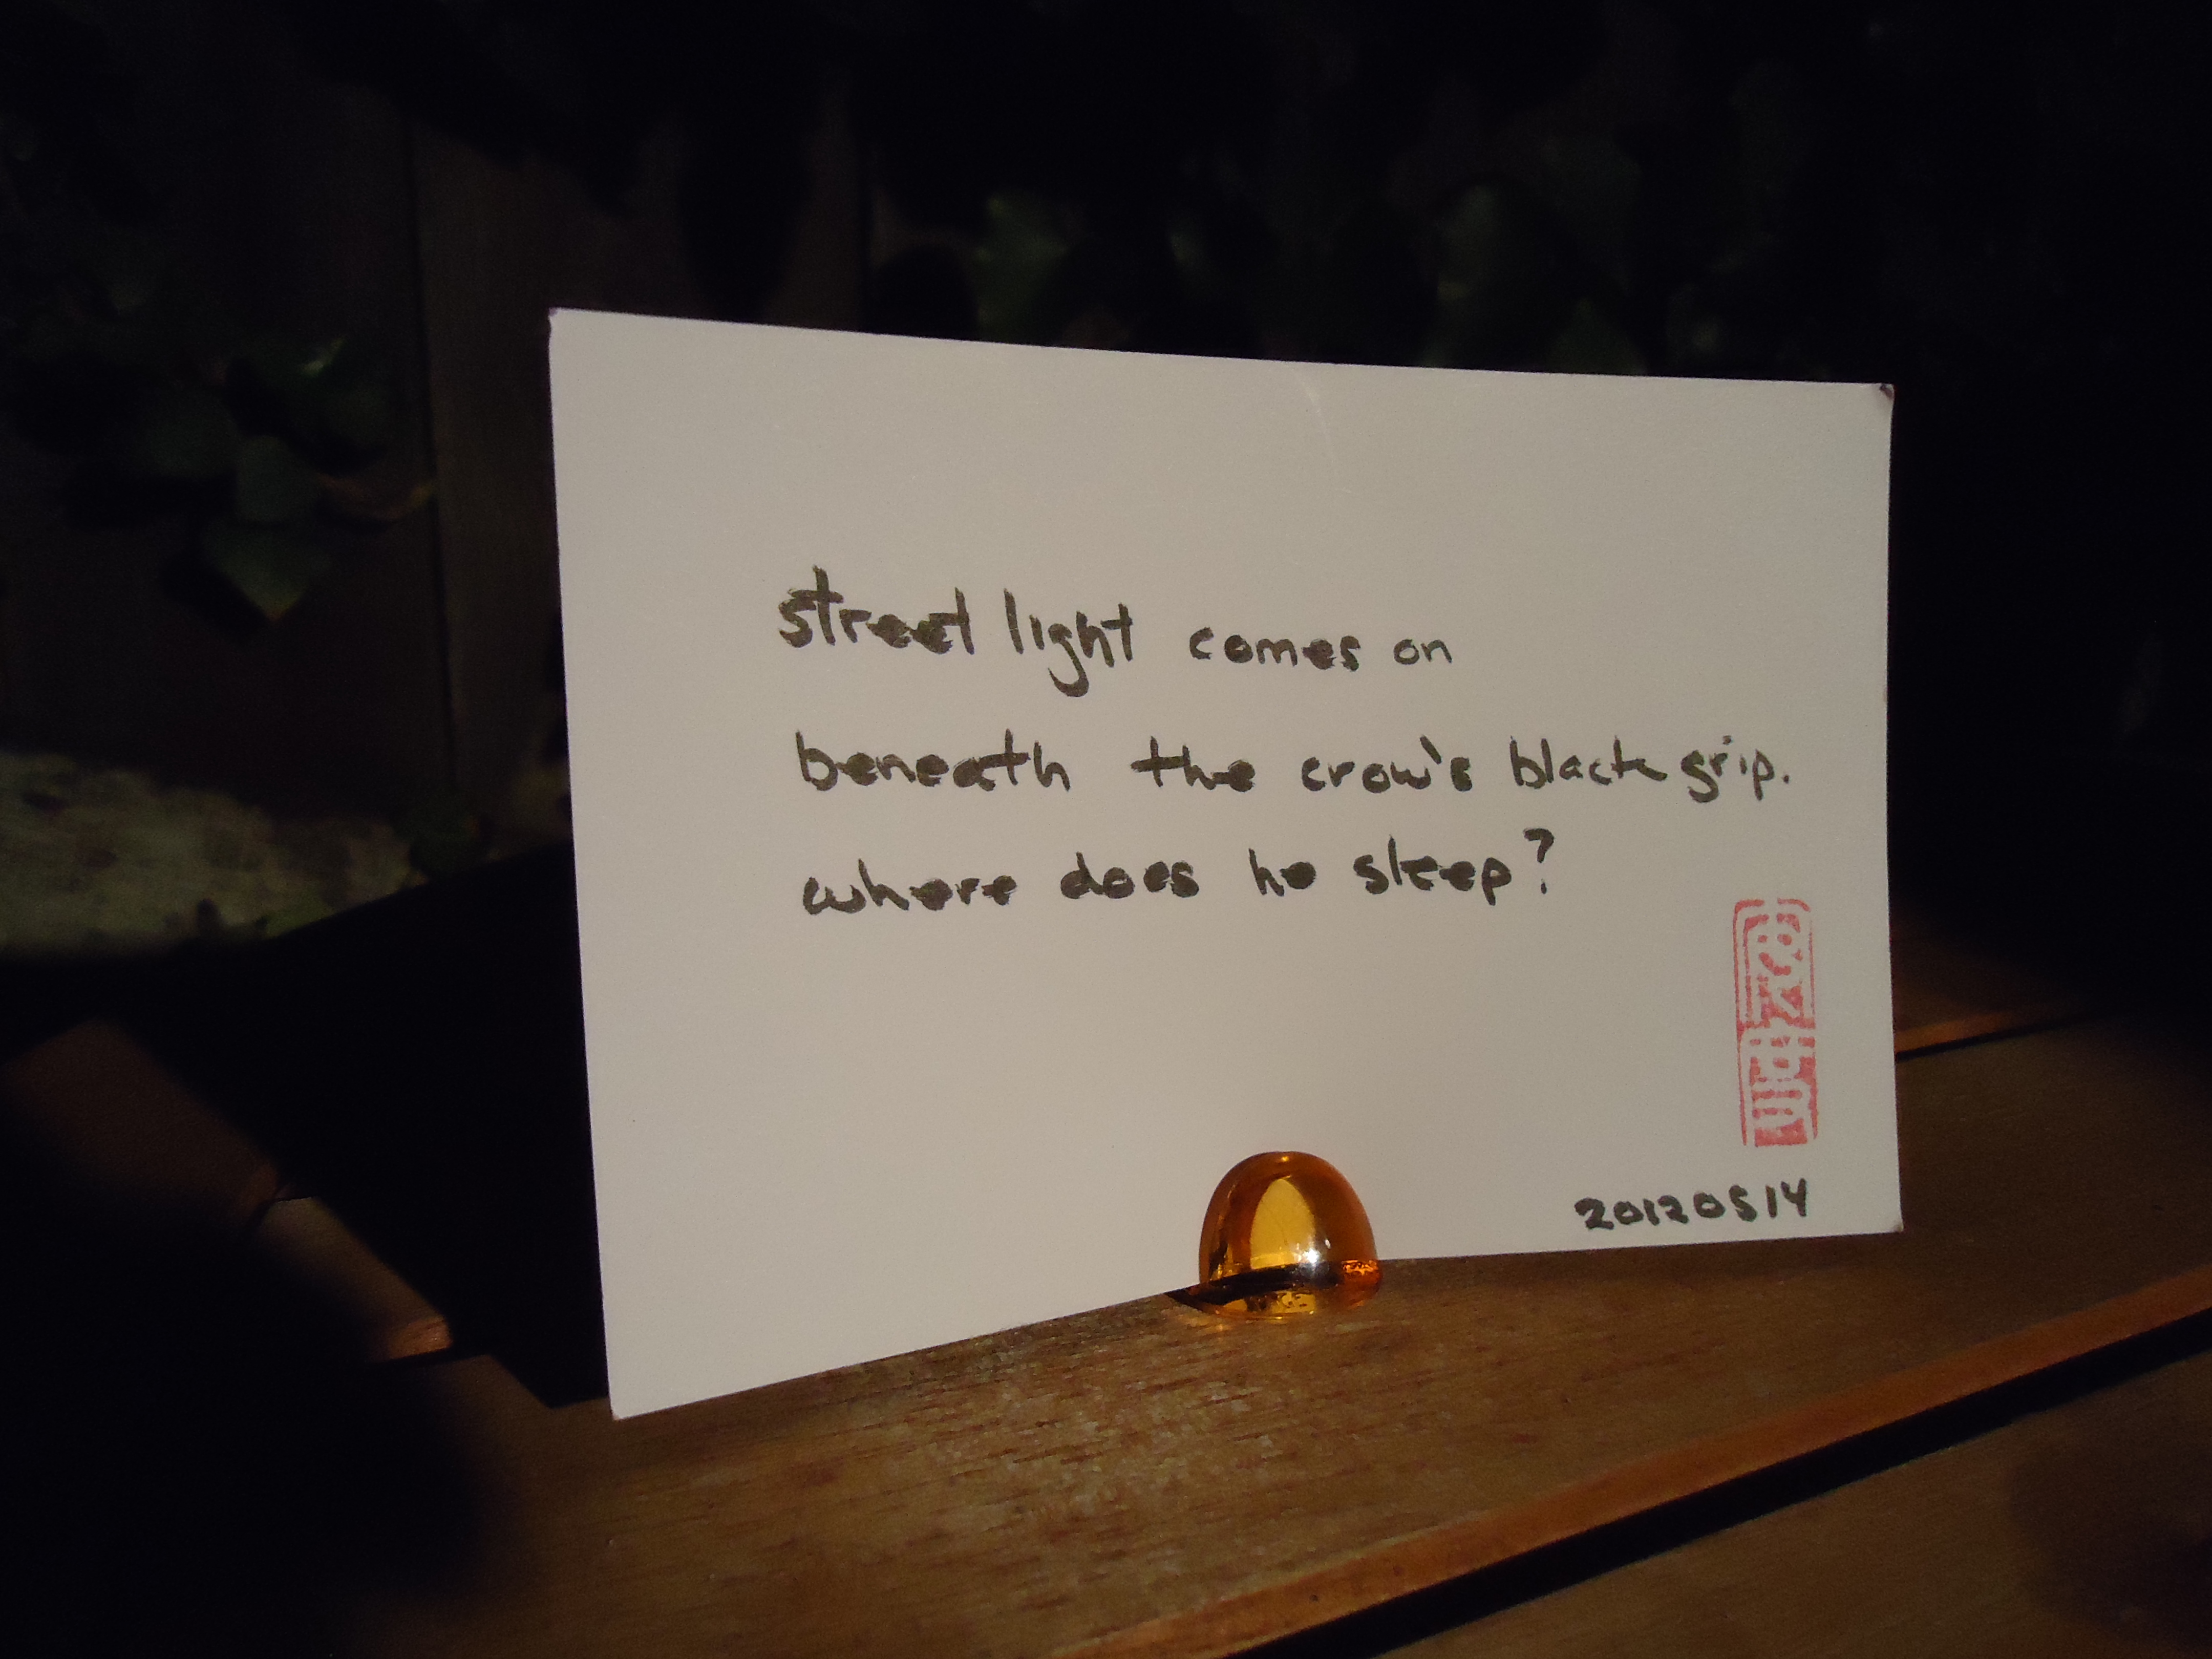 street light comes on
beneath the crow's black grip.
where does he sleep?
20120514